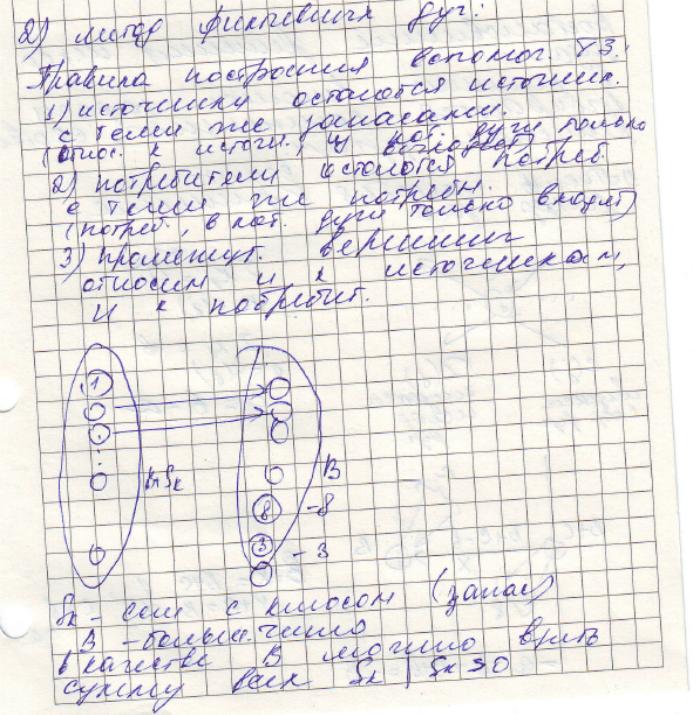 2) метод фиктивных дуг:
Правила построения вспомог. ТЗ:
1) источники остаются источник.
с теми же запасами.
(относ. к источн., у кот. дуги только
выходят)
2) потребители остаются потреб.
с теми же потребн.
(потреб., в кот. дуги только входят)
3) промежут. вершины
относим и к источникам,
и к потребит.
1
B
8 -8
3 - 3
Sk - если с плюсом (запас)
B - больш. число
в качестве B можно взять
сумму всех Sk | Sk > 0